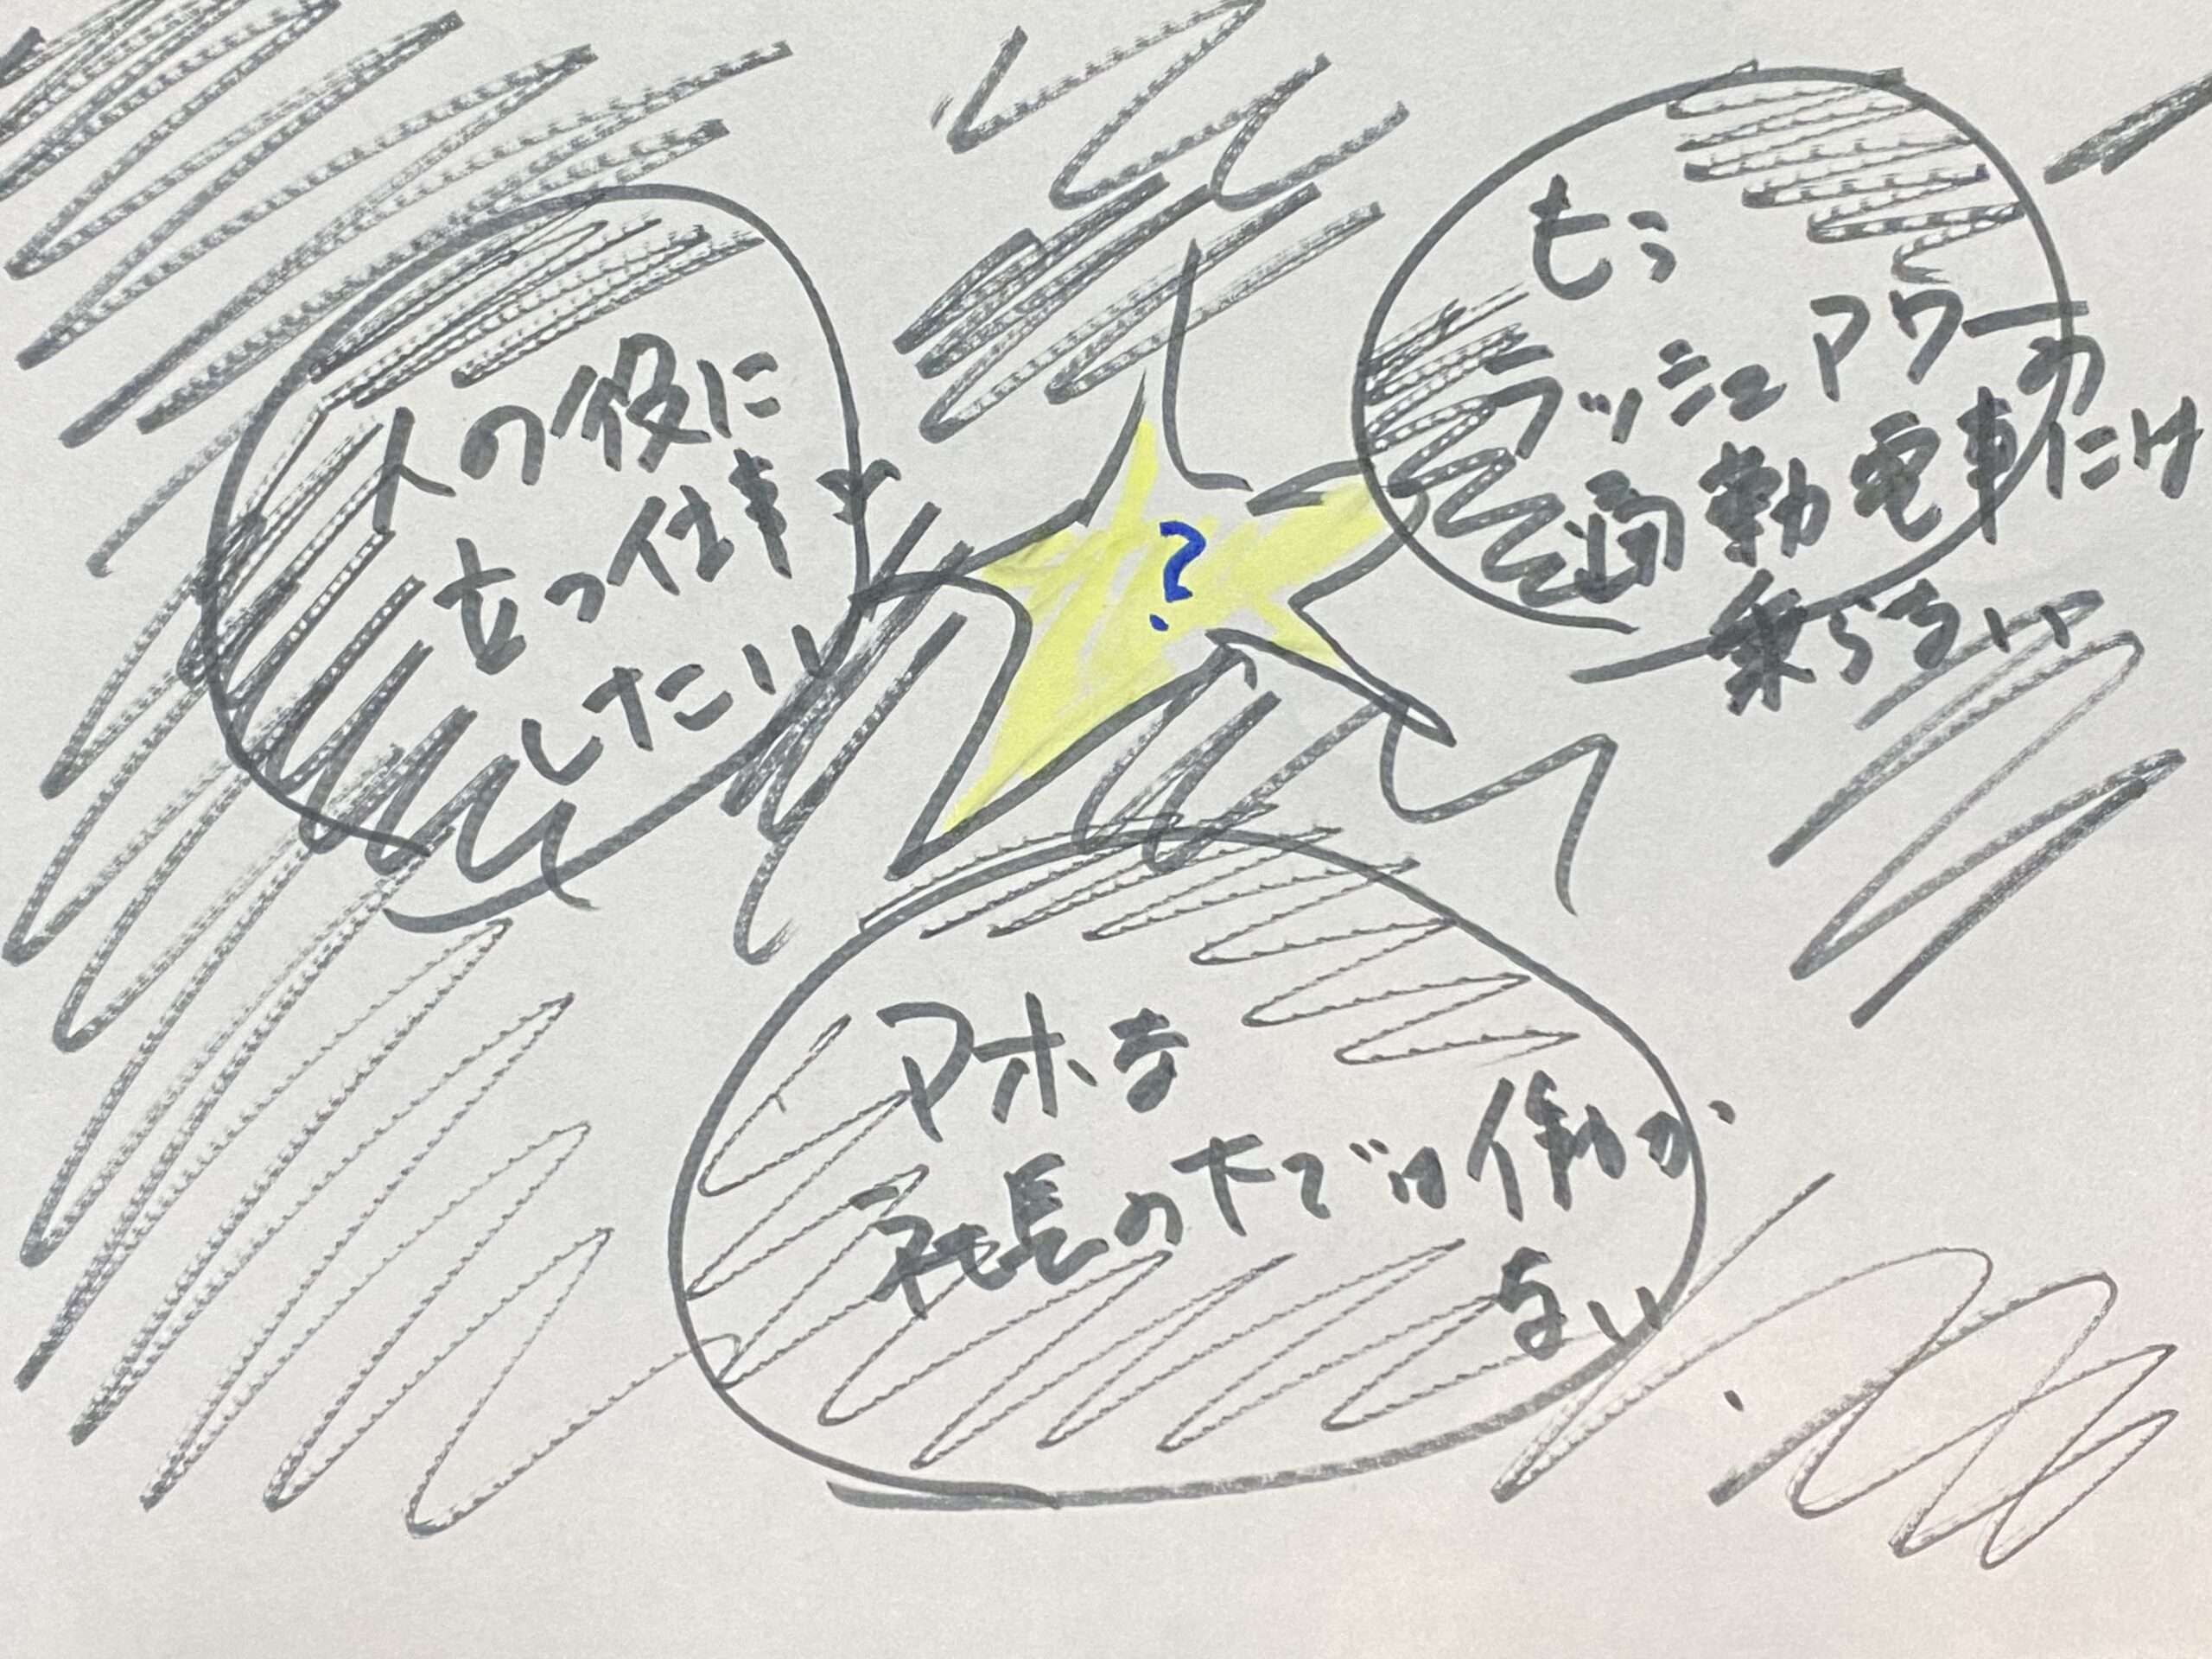 人の役に
立つ仕事を
したい
?
もう
ラッシュアワーの
通勤電車にけ
乗らない
アホな
社長の下では働か
ない